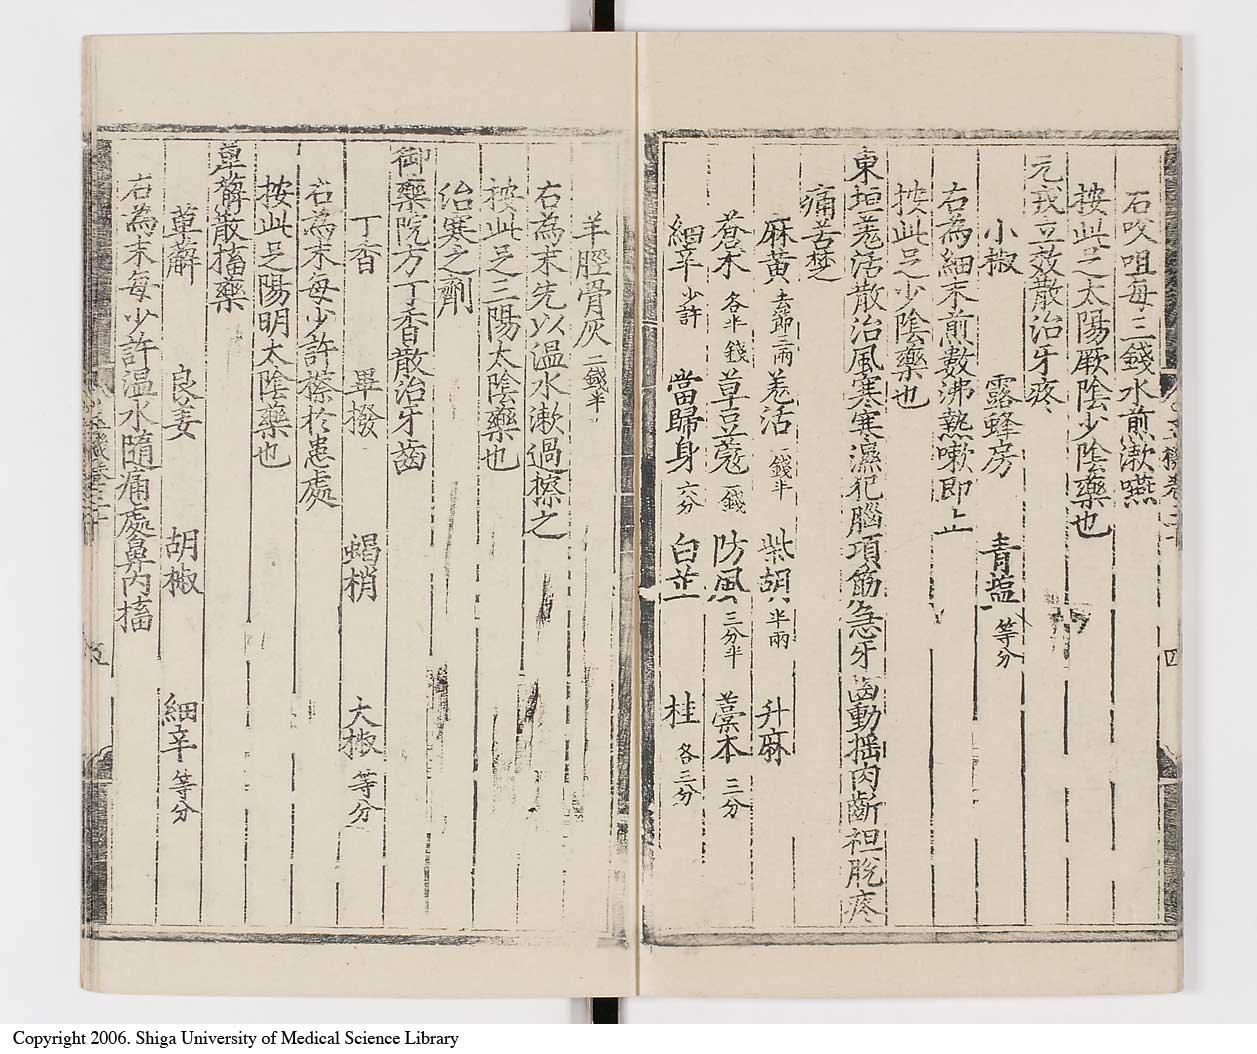 右㕮咀每三錢水煎漱嚥
按此足太陽厥陰少陰藥也
元戎立效散治牙疼
小椒 露蜂房 青塩等分
右為細末煎數沸熱嗽即止
按此足少陰藥也
東垣羗活散治風寒寒濕犯腦項筋急牙齒動揺肉齗袒脫疼
痛苦楚
麻黄去節三兩 羗活一錢半 柴胡半兩 升麻
蒼术各半錢 草豆蔻一錢 防風三分半 藁本三分
細辛少許 當歸身六分 白芷 桂各三分
羊脛骨灰二錢半
右為末先以温水漱過擦之
按此足三陽太陰藥也
治寒之劑
御藥院方丁香散治牙齒
丁香 蓽撥 蝎梢 大椒等分
右為末每少許擦於患處
按此足陽明太陰藥也
萆薢散搐藥
萆薢 良姜 胡椒 細辛等分
右為末每少許温水隨痛處鼻内搐
四
五
Copyright 2006. Shiga University of Medical Science Library